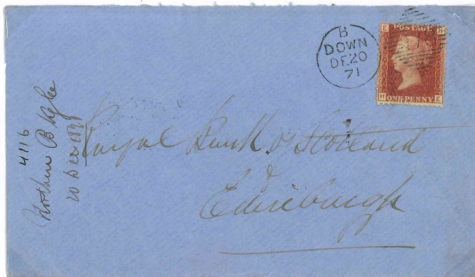 B
DOWN
DE 20
71
E H
POSTAGE
ONE PENNY
H E
4116
Northern B
20 Dec 1871
Royal Bank of Scotland
Edinburgh